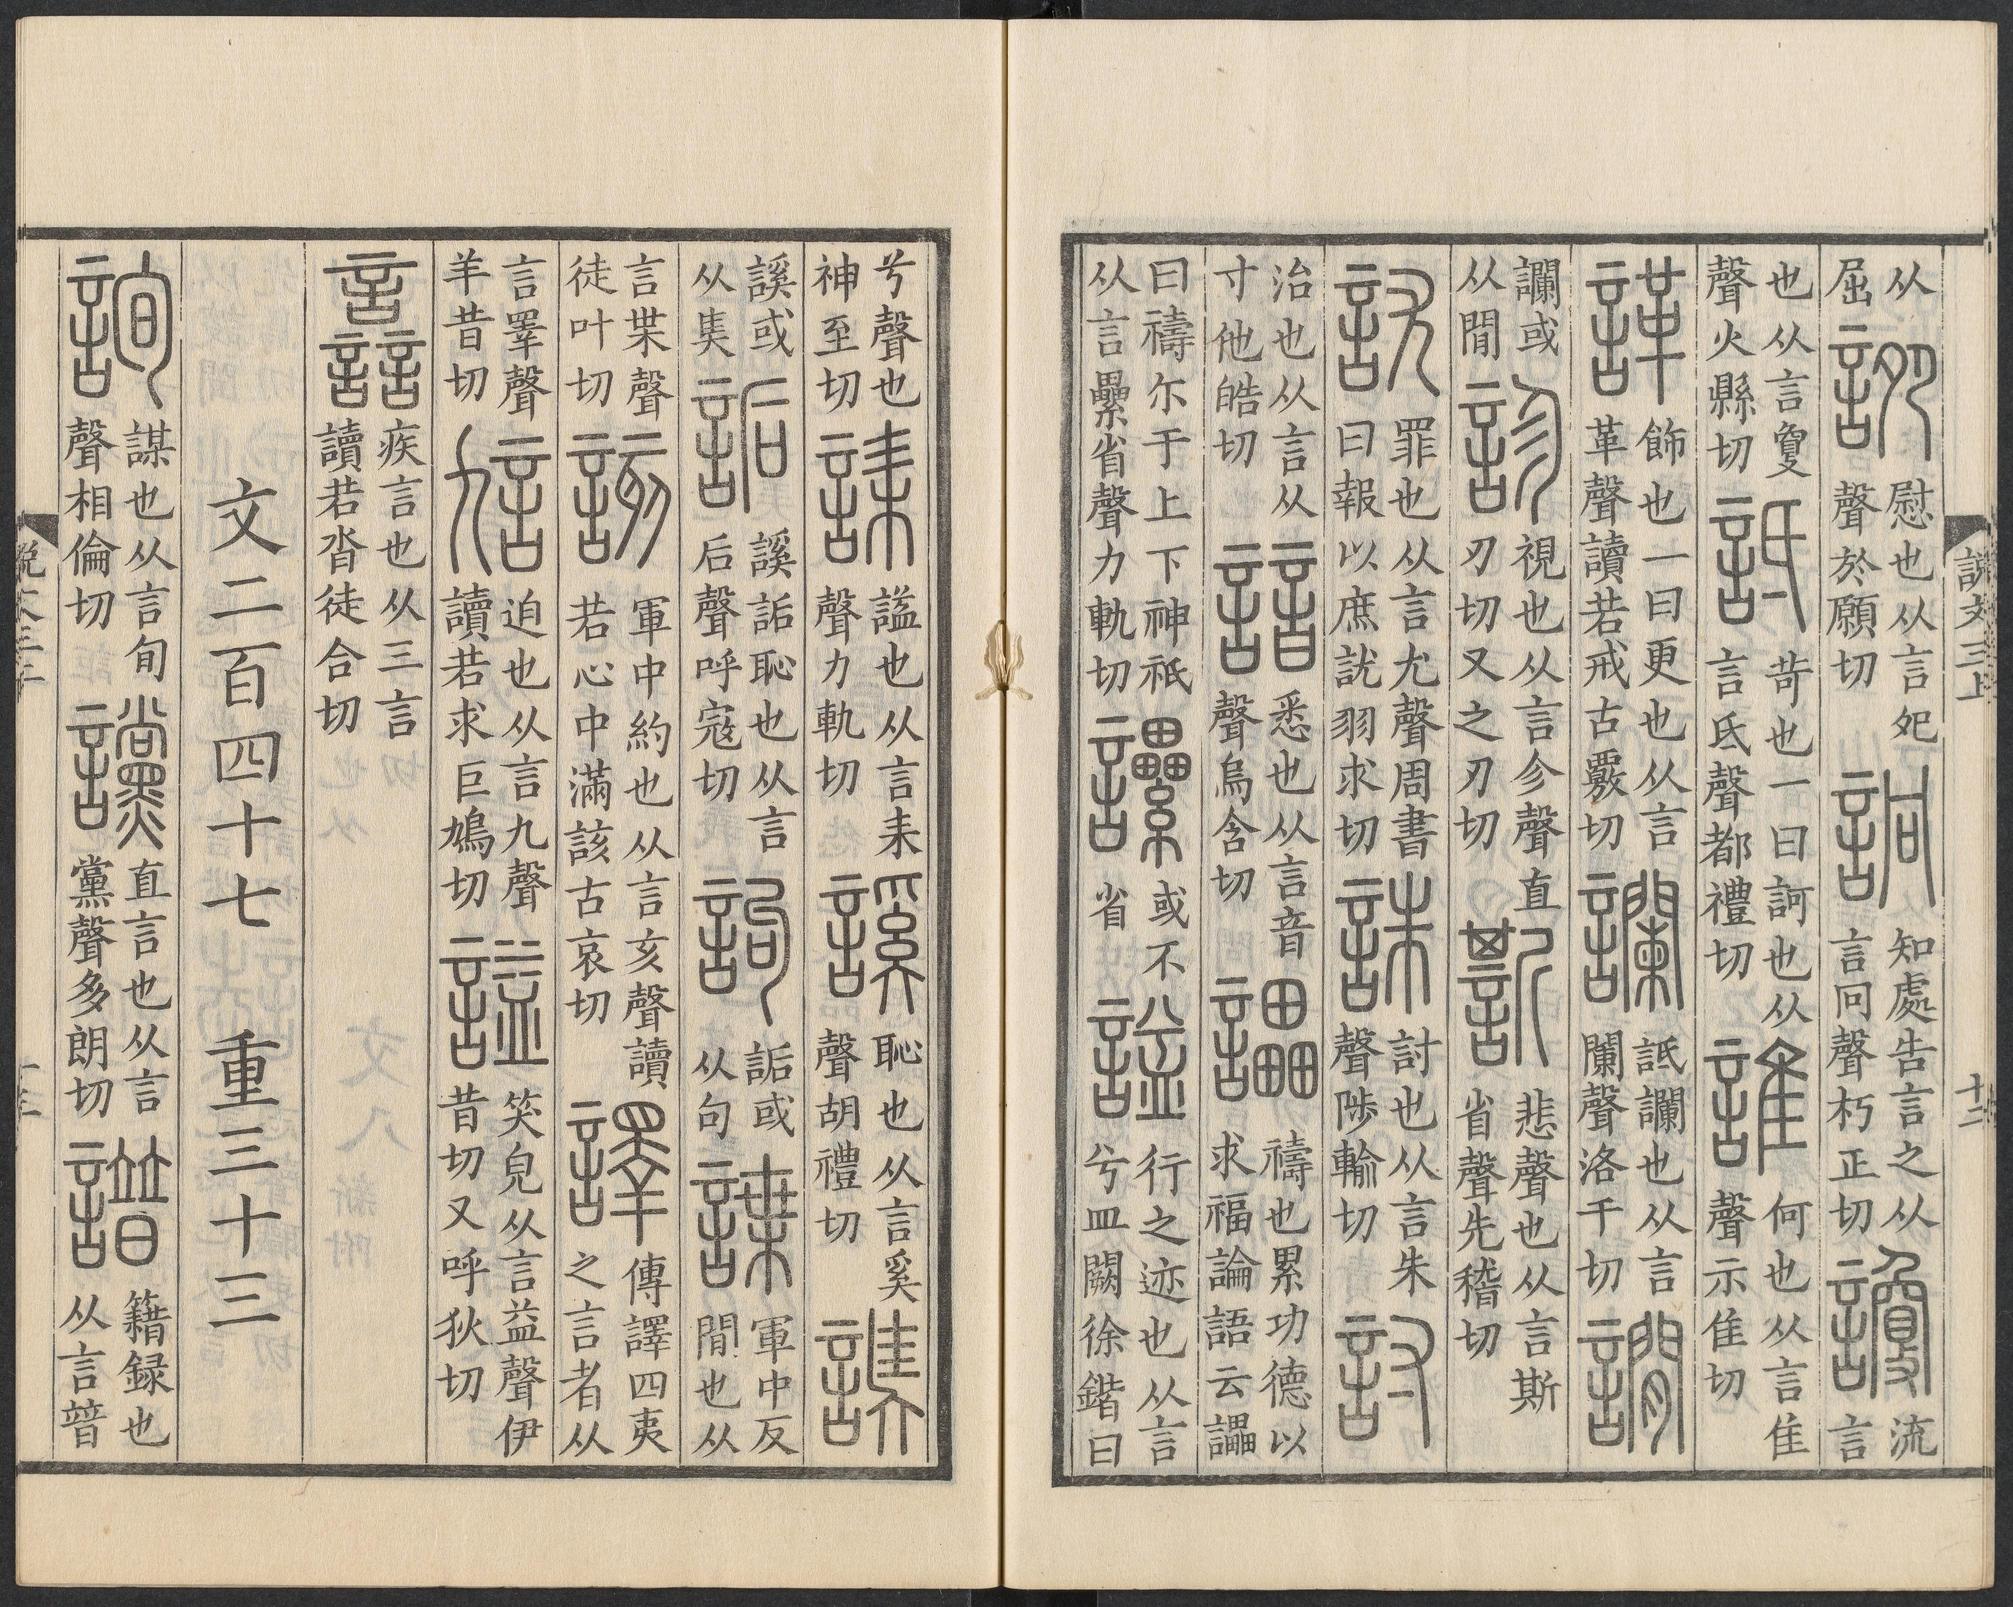 說文三上 十二
从屈䛷慰也从言夗聲於願切詗知處告言之从言冋聲朽正切讂流言
也从言夐聲火縣切詆苛也一曰訶也从言氐聲都禮切誰何也从言隹聲示隹切
諽飾也一曰更也从言革聲讀若戒古覈切讕詆讕也从言闌聲洛干切𧬘
讕或从閒診視也从言㐱聲直刃切又之刃切𧥄悲聲也从言斯省聲先稽切
訧罪也从言尤聲周書曰報以庶訧羽求切誅討也从言朱聲陟輸切討
治也从言从寸他皓切諳悉也从言音聲烏含切讄禱也累功德以求福論語云讄
曰禱尓于上下神祇从言纍省聲力軌切𧮢或不省謚行之迹也从言兮皿闕徐鍇曰
兮聲也神至切誄謚也从言耒聲力軌切謑恥也从言奚聲胡禮切
謑或从奊詬謑詬恥也从言后聲呼寇切訽詬或从句諜軍中反閒也从
言枼聲徒叶切該軍中約也从言亥聲讀若心中滿該古哀切譯傳譯四夷之言者从
言睪聲羊昔切訄迫也从言九聲讀若求巨鳩切謚笑皃从言益聲伊昔切又呼狄切
譶疾言也从三言讀若沓徒合切
文二百四十七 重三十三
詢謀也从言旬聲相倫切讜直言也从言黨聲多朗切譜籍録也从言普